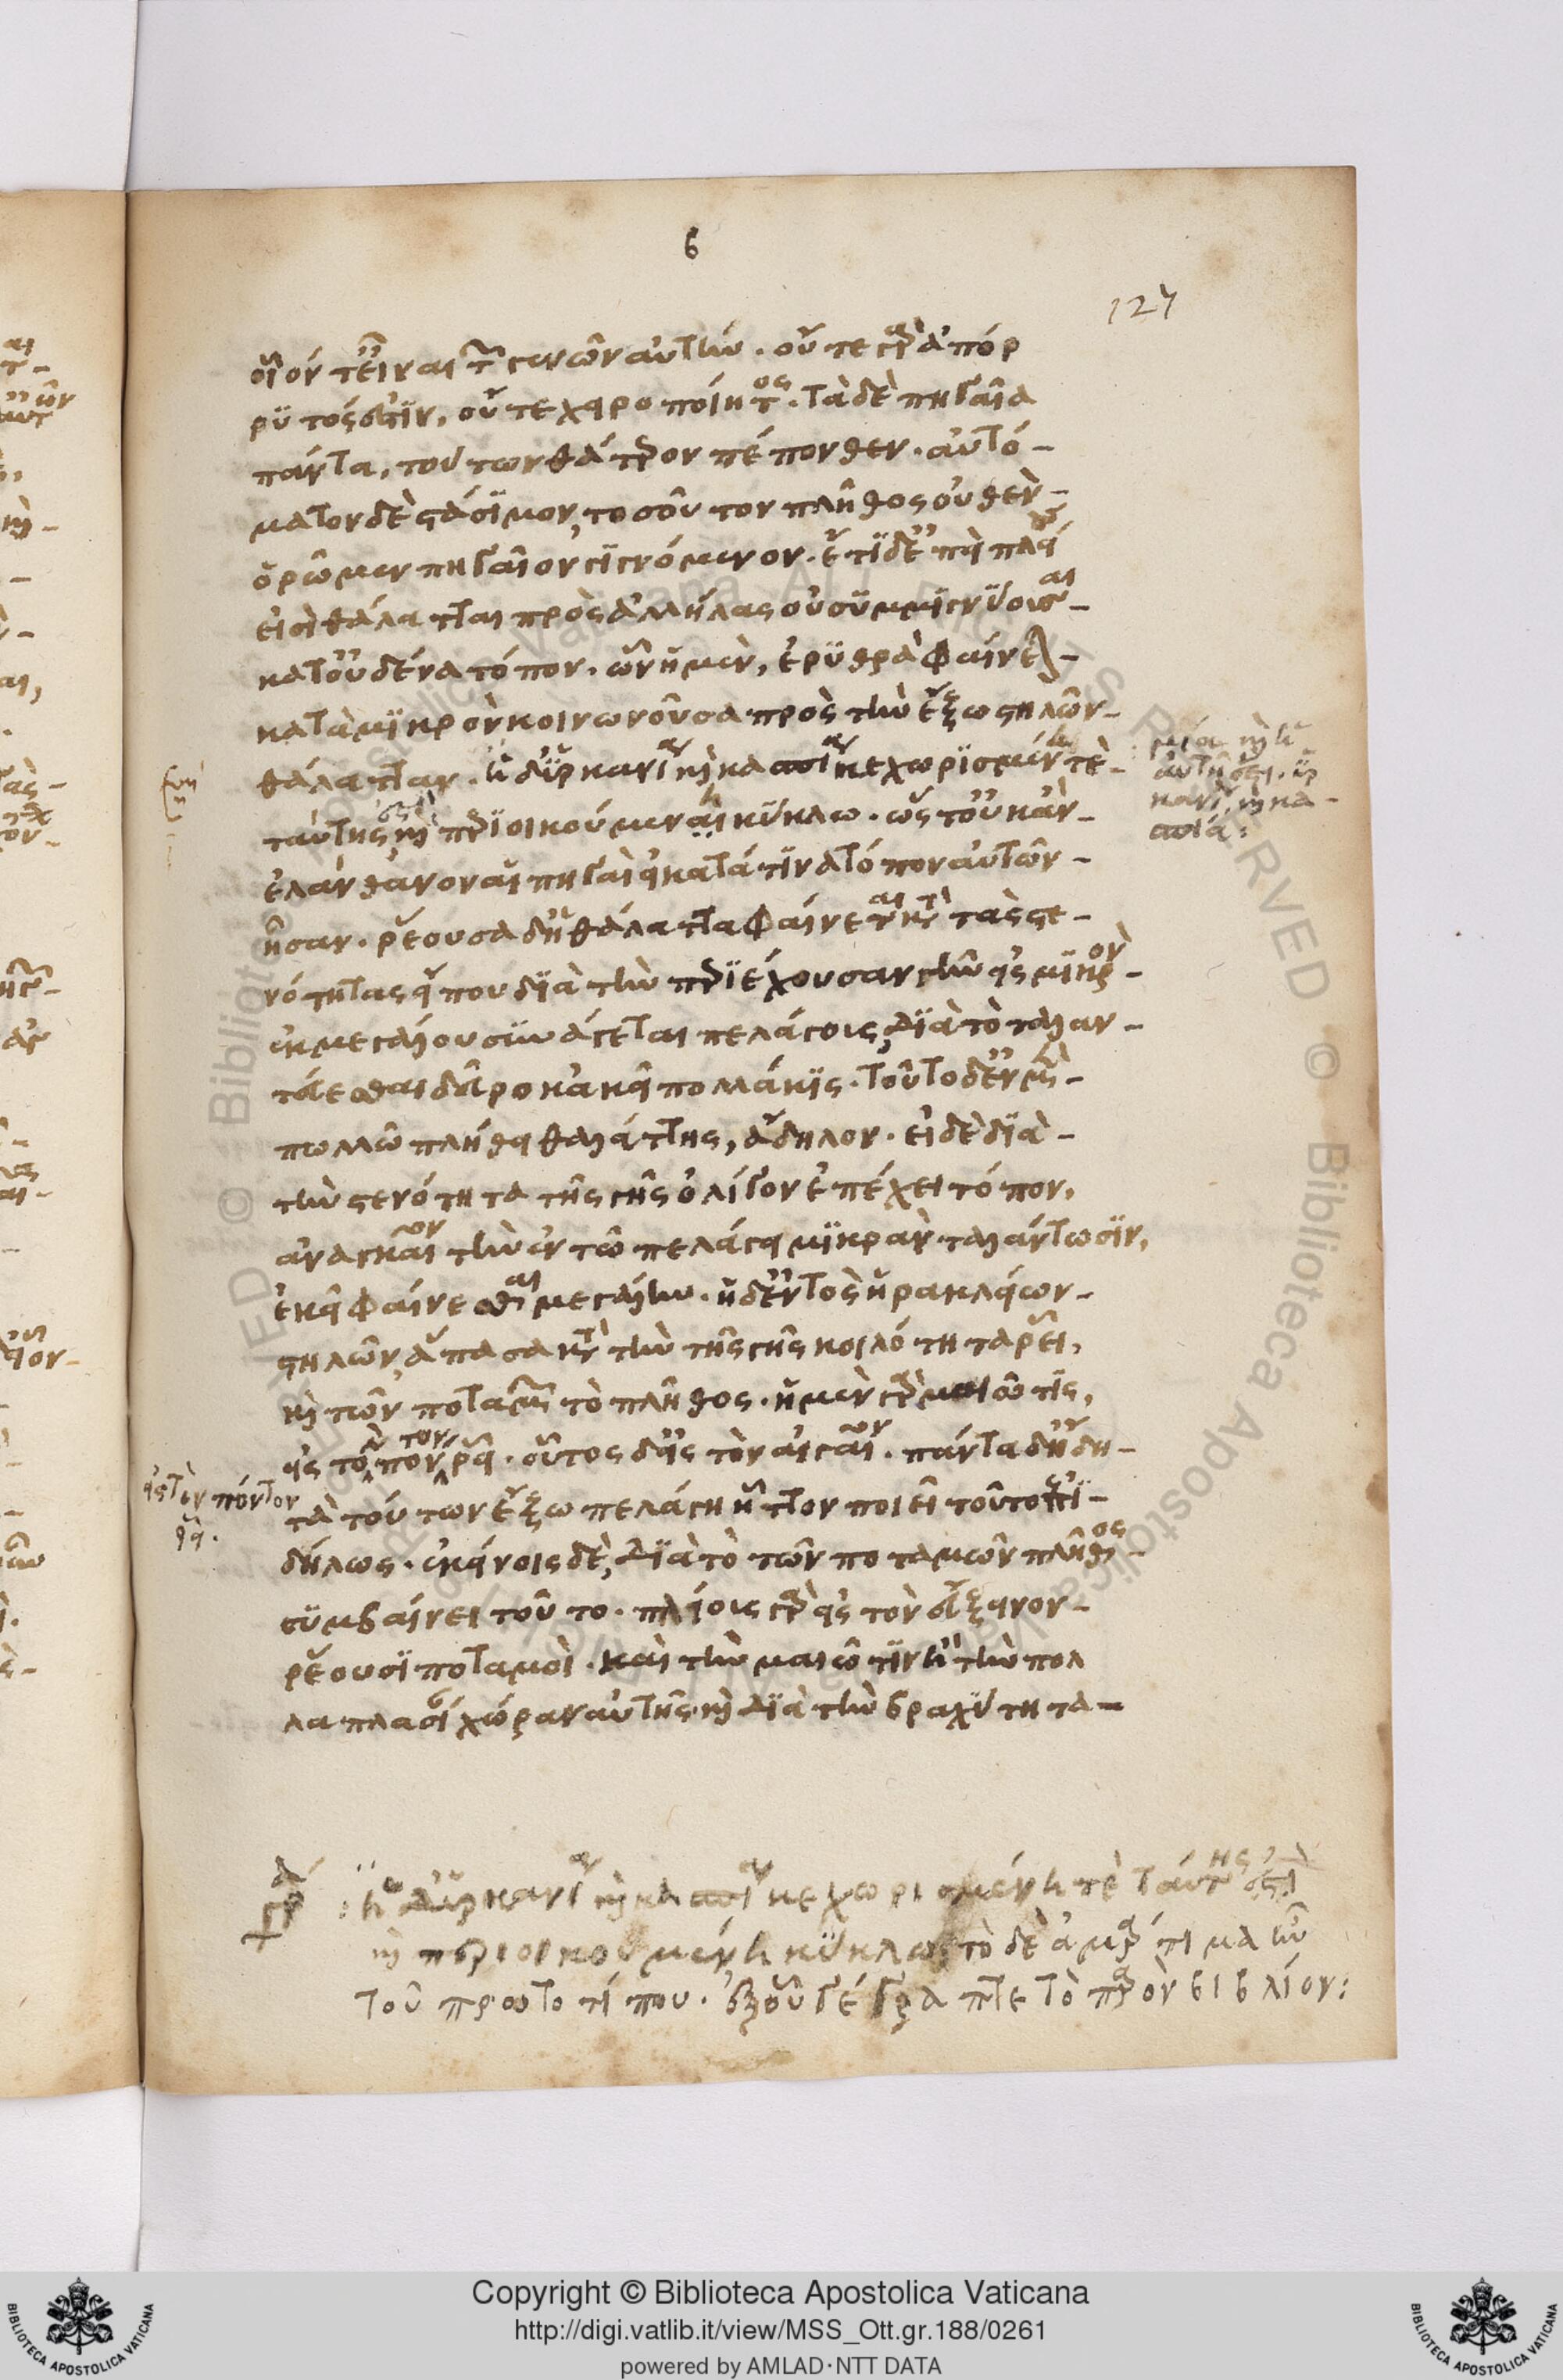 6
127
οἷόν τ' εἶναι τ γενῶν αὐτήν. οὔτε γὰρ ἀπόρ
ρϋτός ἐστϊν, οὔτε χειροποίητος. τὰ δὲ πηγαῖα
πάντα, τούτων θάτερον πέπονθεν. αὐτό-
ματον δὲ στάσϊμον, τοσοῦτον πλῆθος οὐθὲν-
ὁρῶμεν πηγαῖον γϊγνόμενον. ἔτϊ δ' ἐπεὶ πλείους
εἰσὶ θάλατται πρὸς ἀλλήλας οὐ σϋμμϊγνϋουσαι-
κατ' οὐδένα τόπον. ὧν ἡ μὲν, ἐρϋθρὰ φαίνεται-
κατὰ μϊκρὸν κοινωνοῦσα πρὸς τὴν ἔξω στηλῶν-
θάλατταν. ἡ δ' ὑρκανία καὶ κασπία κεχωρϊσμένη τὲ-
ταύτης ἐστὶ καὶ περϊοικούμεναι κϋκλω. ὥστ' οὐκ ἂν-
ἐλάνθανον αἱ πηγαὶ εἰ κατά τϊνα τόπον αὐτῶν-
ἦσαν. ῥέουσα δ' ἡ θάλαττα φαίνεται κατὰ τὰς στε-
νότητας εἴ που δϊὰ τὴν περϊέχουσαν γῆν εἰς μϊκρὸν-
ἐκ μεγάλου σϋνάγεται πελάγους, δϊὰ τὸ ταλαν-
τεύεσθαι δεῦρο κἀκεῖ πολλάκϊς. τοῦτο δ' ἐν μὲν-
πολλῶ πλήθει θαλάττης, ἄδηλον. εἰ δὲ δϊὰ-
τὴν στενότητα τῆς γῆς ὀλίγον ἐπέχει τόπον,
ἀναγκαῖον τὴν ἐν τῶ πελάγει μϊκρὰν ταλάντωσϊν,
ἐκεῖ φαίνεσθαι μεγάλην. ἡ δ' ἐντὸς ἡρακλείων-
στηλῶν, ἅπασα κατὰ τὴν τῆς γῆς κοιλότητα ῥεῖ,
καὶ τῶν ποταμῶν τὸ πλῆθος. ἡ μὲν γὰρ μαιῶτϊς,
εἰς τὸν πόντον ῥεῖ. οὗτος δ' εἰς τὸν αἰγαῖον. πάντα δ' ἤδη-
τὰ τούτων ἔξω πελάγη ἧττον ποιεῖ τοῦτο ἐπϊ-
δήλως. ἐκείνοις δὲ, δϊὰ τὸ τῶν ποταμῶν πλῆθος-
σϋμβαίνει τοῦτο. πλείους γὰρ εἰς τὸν εὔξεινον-
ῥέουσϊ ποταμοὶ. καὶ τὴν μαιῶτϊν ἢ τὴν πολ
λαπλασίαν χώραν αὐτῆς. καὶ δϊὰ τὴν βραχϋτητα-
μία καὶ ἡ
αὐτή ἐστι. ὑρ
κανία καὶ κα-
σπία:
εἰς τὸν πόντον
ῥεῖ.
: ἡ δ' ὑρκανία καὶ κασπία κεχωρισμένη τὲ ταύτης ἐστὶ
καὶ περιοικουμένη κϋκλω. τὸ δὲ ἁμάρτιμα ἦν
τοῦ πρωτοτίπου. ἐξ οὗ γέγραπτε τὸ παρὸν βιβλίον:
Copyright © Biblioteca Apostolica Vaticana
http://digi.vatlib.it/view/MSS_Ott.gr.188/0261
powered by AMLAD·NTT DATA